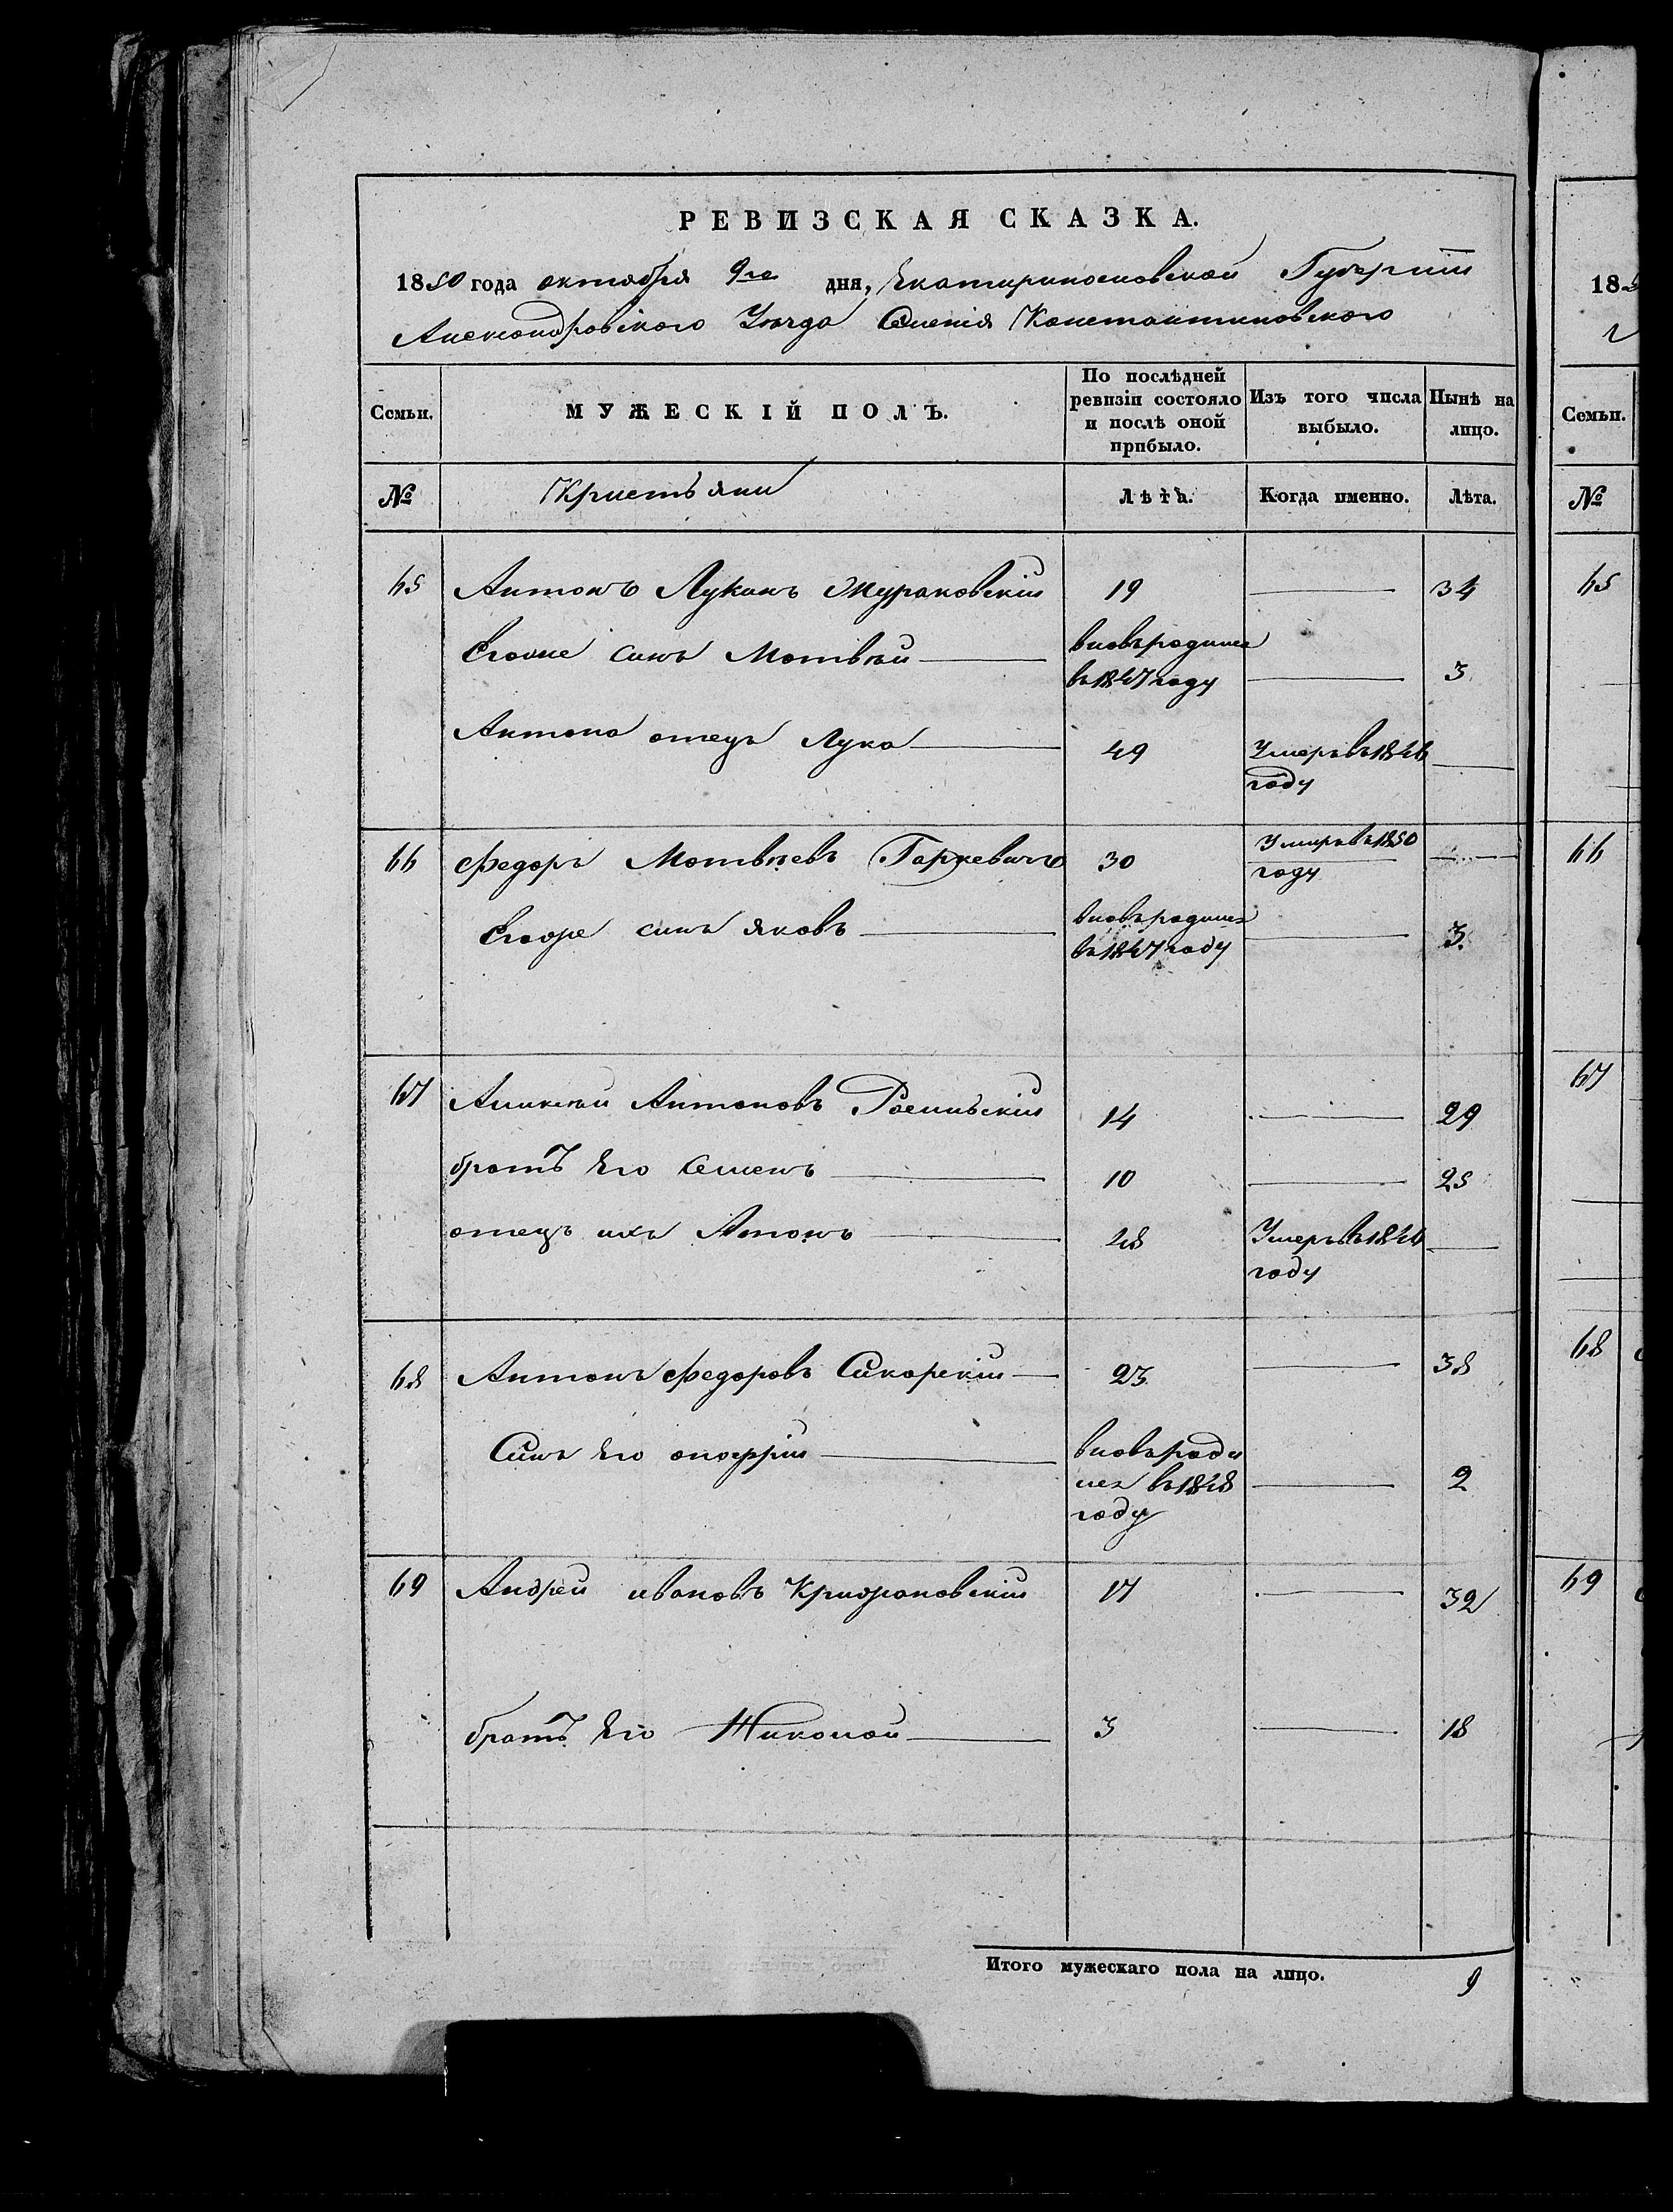 РЕВИЗСКАЯ СКАЗКА.
1850 года октября 9го дня, Екатериносповской Губернии
Александровского Уезда Селенія Константиновского
Семьи.
МУЖЕСКІЙ ПОЛЪ.
По послѣдней ревизіи состояло и послѣ оной прибыло.
Изъ того числа выбыло.
Нынѣ на лицо.
№
Кристьяни
Лѣта.
Когда именно.
Лѣта.
65 Антонъ Лукинъ Жураковскій 19 34
Егоже синъ Матвѣй вновьродился
въ 1847 году 3
Антона отецъ Лука 49 Умеръ въ 1846
году
66 Федоръ Матвѣевъ Гаркевичъ 30 Умиръ въ 1850
году
Егоже синъ Яковъ вновьродился
въ 1847 году 3.
67 Аликсѣй Антоновъ 14 29
братъ Его Семенъ 10 25
отецъ ихъ Антонъ 48 Умеръ въ 1844
году
68 Антонъ Федоровъ Сикорскій 23 38
Синъ Его онофрій вновьроди
лся въ 1848 2
году
69 Андрей ивановъ 17 32
братъ Его Николай 3 18
Итого мужескаго пола на лицо. 9
18
Семьи.
№
65
66
67
68
69